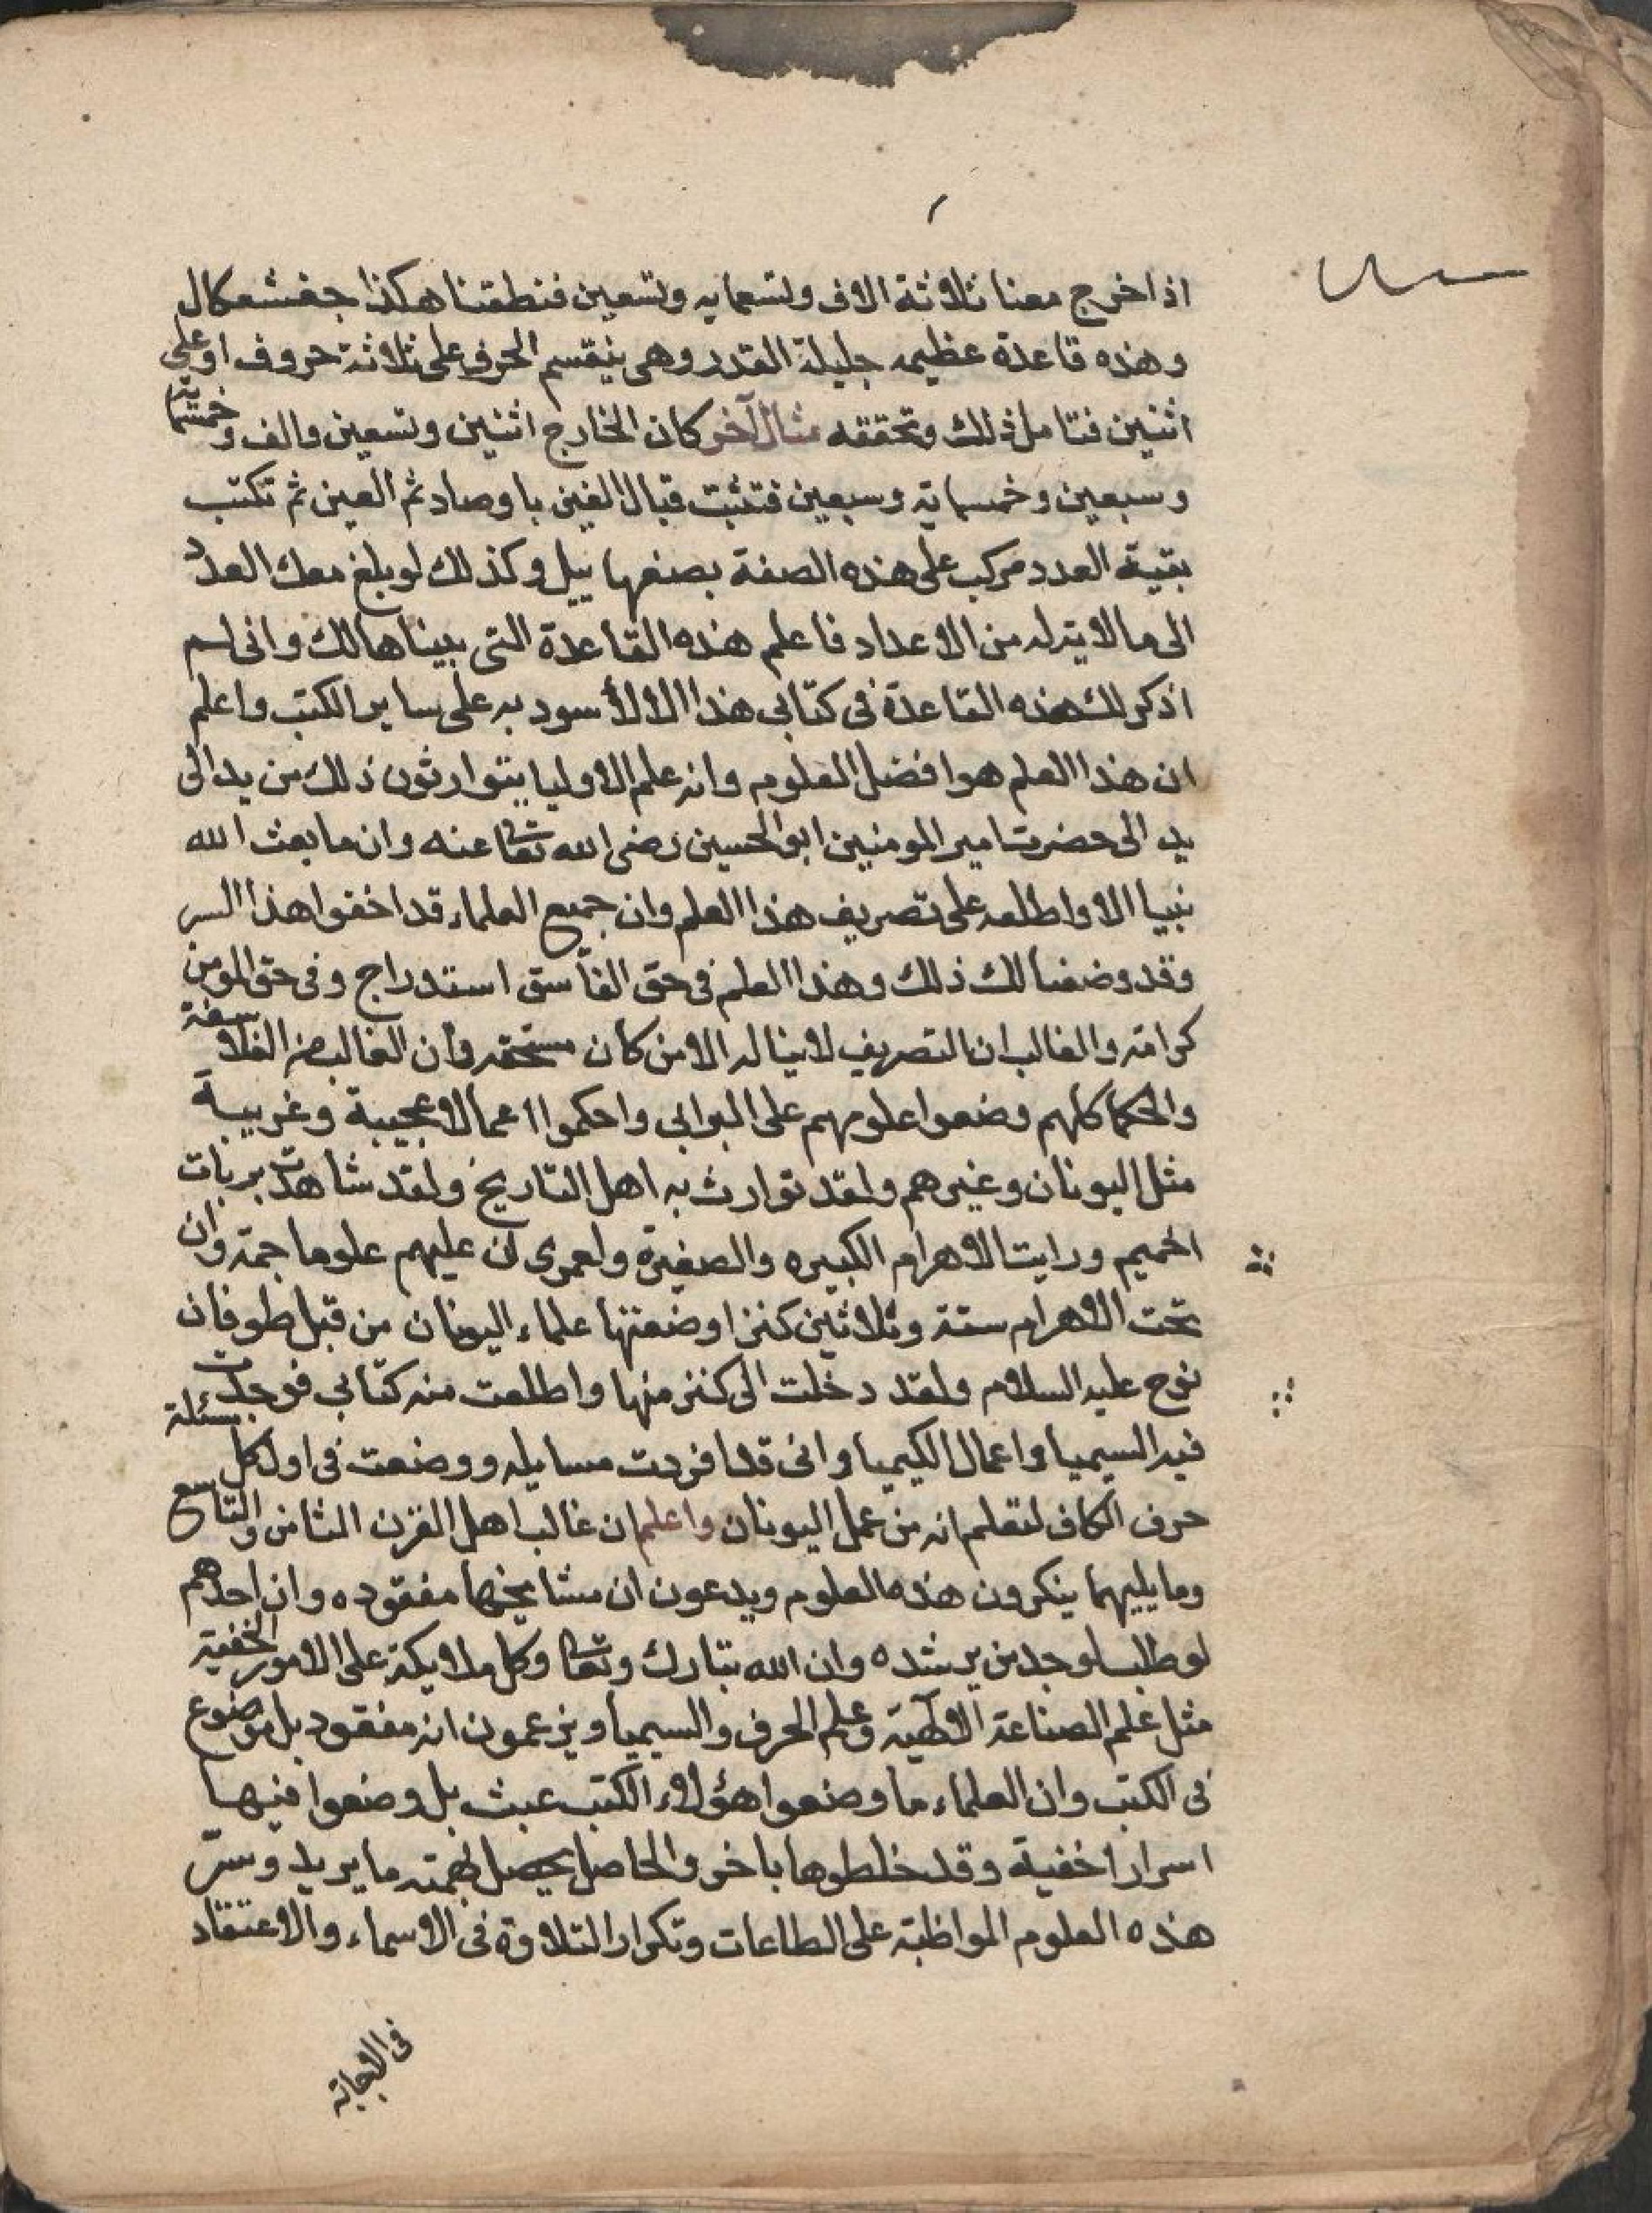 اذا خرج معنا ثلاثة الاف وتسعمايه وتسعين فنطقنا هكذا جغشعكال
وهذه قاعدة عظيمه جليلة القدر وهى ينقسم الحرف على ثلاثة حروف او على
اثنين فتامل ذلك وتحققه مثال آخر كان الخارج اثنين وتسعين والف وخمسماية
وسبعين وخمسماية وسبعين فتثبت قبال الغين با وصاد ثم العين ثم تكتب
بقية العدد مركب على هذه الصفة بصغها ييل وكذلك لو بلغ معك العدد
الى ما لا يترله من الاعداد فاعلم هذه القاعدة التى بيناها لك وانى لم
اذكر لك هذه القاعدة فى كتابى هذا الا لأسود به على ساير الكتب واعلم
ان هذا العلم هو افضل العلوم وانه علم الاوليا يتوارثون ذلك من يد الى
يد الى حضرت امير المومنين ابو الحسين رضى الله تعا عنه وان ما بعث الله
نبيا الا واطلعه على تصريف هذا العلم وان جميع العلماء قد اخفوا هذا السر
وقد وضعنا لك ذلك وهذا العلم فى حق الفاسق استدراج وفى حق المومن
كرامة والغالب ان التصريف لا يناله الا من كان مستحقه وان الغالب من الفلاسفة
والحكما كلهم وضعوا علومهم على البوابى واحكموا اعمالا عجيبة وغريبة
مثل اليونان وغيرهم ولقد توارث به اهل التاريخ ولقد شاهدت بربات
اخميم ورايت الاهرام الكبيره والصغيرة ولعمرى ان عليهم علوما جمة وان
تحت الاهرام ستة وثلاثين كنزا وضعتها علماء اليونان من قبل طوفان
نوح عليه السلام ولقد دخلت الى كنز منها واطلعت منه كتابى فوجدت
فيه السيميا واعمال الكيميا وانى قد افردت مسايله ووضعت فى اول كل مسئلة
حرف الكاف لتعلم انه من عمل اليونان واعلم ان غالب اهل القرن الثامن والتاسع
وما يليهما ينكرون هذه العلوم ويدعون ان مشايخها مفقوده وان احدهم
لو طلب لوجد من يرشده وان الله تبارك وتعا وكل ملايكة على الامور الخفية
مثل علم الصناعة الالهية وعلم الحرف والسيميا ويزعمون انه مفقود بل موضوع
فى الكتب وان العلماء ما وضعوا هؤلاء الكتب عبث بل وضعوا فيها
اسرارا خفية وقد خلطوها باخر والحاصل يحصل بهمته ما يريد وسرّ
هذه العلوم المواظبة على الطاعات وتكرار التلاوة فى الاسماء والاعتقاد
فى الاجابة